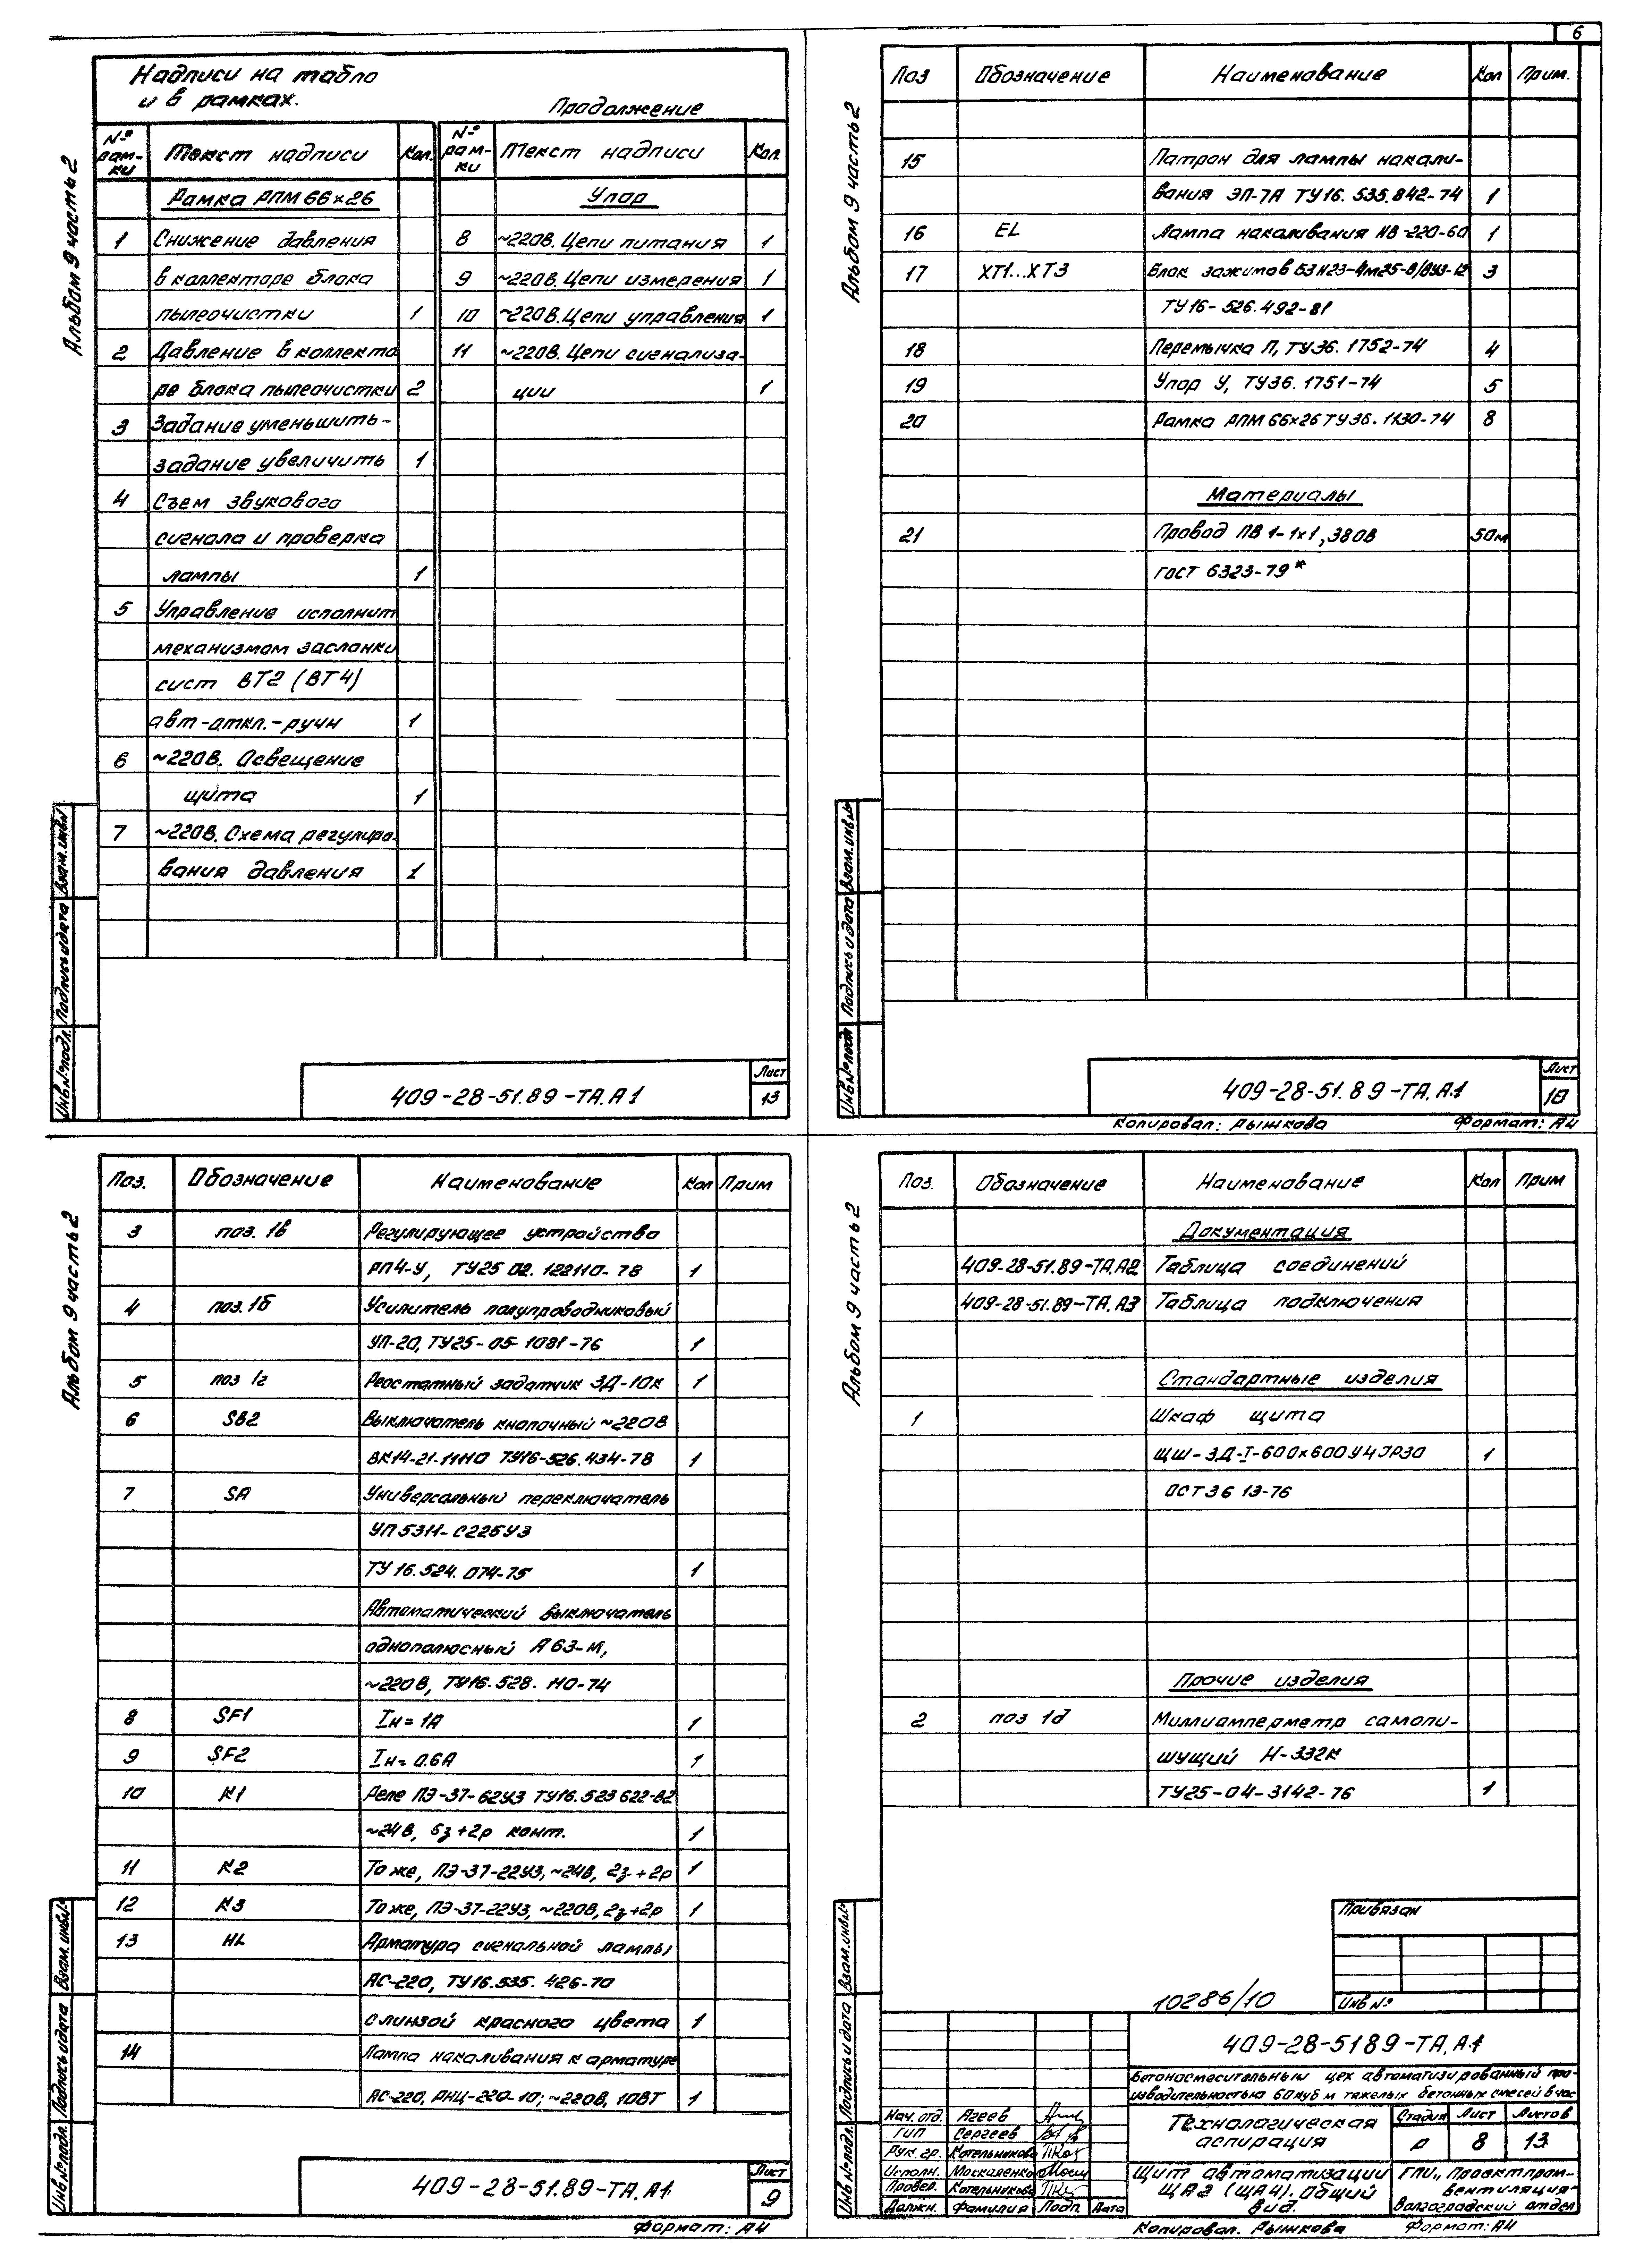 6
Альбом 9 часть 2
Надписи на табло
и в рамках.
Продолжение
№ рам-ки Текст надписи Кол. № рам-ки Текст надписи Кол.
Рамка РПМ 66×26
1 Снижение давления
в коллекторе блока
пылеочистки 1
2 Давление в коллекто
ре блока пылеочистки 2
3 Задание уменьшить-
задание увеличить 1
4 Съем звукового
сигнала и проверка
лампы 1
5 Управление исполнит
механизмом заслонки
сист ВТ2 (ВТ4)
авт-откл.-ручн 1
6 ~220В. Освещение
щита 1
7 ~220В. Схема регулиро-
вания давления 1
Упор
8 ~220В. Цепи питания 1
9 ~220В. Цепи измерения 1
10 ~220В. Цепи управления 1
11 ~220В. Цепи сигнализа-
ции 1
Инв№подл. Подпись и дата Взам.инв№
409-28-51.89-ТА.А1
Лист
13
Альбом 9 часть 2
Поз Обозначение Наименование Кол Прим.
15 Патрон для лампы накали-
вания ЭП-7А ТУ16. 535. 842-74 1
16 EL Лампа накаливания НВ-220-60 1
17 ХТ1...ХТ3 Блок зажимов БЗН23-4М25-В/ВУЗ-12 3
ТУ16-526.492-81
18 Перемычка П, ТУ36. 1752-74 4
19 Упор У, ТУ36. 1751-74 5
20 Рамка РПМ 66×26 ТУ36. 1130-74 8
Материалы
21 Провод ПВ 1-1×1, 380В 50м
ГОСТ 6323-79*
Инв№подл Подпись и дата Взам.инв№
409-28-51.89-ТА.А1
Лист
10
Копировал: Рыжкова Формат: А4
Альбом 9 часть 2
Поз. Обозначение Наименование Кол Прим
3 поз. 1в Регулирующее устройство
РП4-У, ТУ25 02. 122110-78 1
4 поз. 1б Усилитель полупроводниковый
УП-20, ТУ25-05-1081-76 1
5 поз 1г Реостатный задатчик ЗД-10К 1
6 SB2 Выключатель кнопочный ~220В
ВК14-21-11110 ТУ16-526.434-78 1
7 SA Универсальный переключатель
УП5311-С225У3
ТУ 16.524. 074-75 1
Автоматический выключатель
однополюсный А 63-М,
~220В, ТУ16.528. 110-74
8 SF1 Iн=1А 1
9 SF2 Iн=0.6А 1
10 К1 Реле ПЭ-37-62У3 ТУ16.523 622-82
~24В, 6з+2р конт. 1
11 К2 То же, ПЭ-37-22У3, ~24В, 2з+2р 1
12 К3 То же, ПЭ-37-22У3, ~220В, 2з+2р 1
13 HL Арматура сигнальной лампы
АС-220, ТУ16.535. 426-70
с линзой красного цвета 1
14 Лампа накаливания к арматуре
АС-220, РНЦ-220-10; ~220В, 10ВТ 1
Инв№подл. Подпись и дата Взам.инв№
409-28-51.89-ТА.А1
Лист
9
Формат: А4
Альбом 9 часть 2
Поз. Обозначение Наименование Кол Прим
Документация
409-28-51.89-ТА.А2 Таблица соединений
409-28-51.89-ТА.А3 Таблица подключения
Стандартные изделия
1 Шкаф щита
ЩШ-ЗД-I-600×600У4 IP30 1
ОСТ36 13-76
Прочие изделия
2 поз 1д Миллиамперметр самопи-
шущий Н-332К
ТУ25-04-3142-76 1
Инв№подл. Подпись и дата Взам.инв№
Привязан
Инв №
10286/10
409-28-5189-ТА.А1
Бетоносмесительный цех автоматизированный про-
изводительностью 60куб м тяжелых бетонных смесей в час
Нач. отд. Агеев
ГИП Сергеев
Рук. гр. Котельникова
Исполн. Москаленко
Провер. Котельникова
Должн. Фамилия Подп. Дата
Технологическая
аспирация
Стадия Лист Листов
Р 8 13
Щит автоматизации
ЩА2 (ЩА4). Общий
вид.
ГПИ „Проектпром-
вентиляция"
Волгоградский отдел
Копировал. Рыжкова Формат: А4